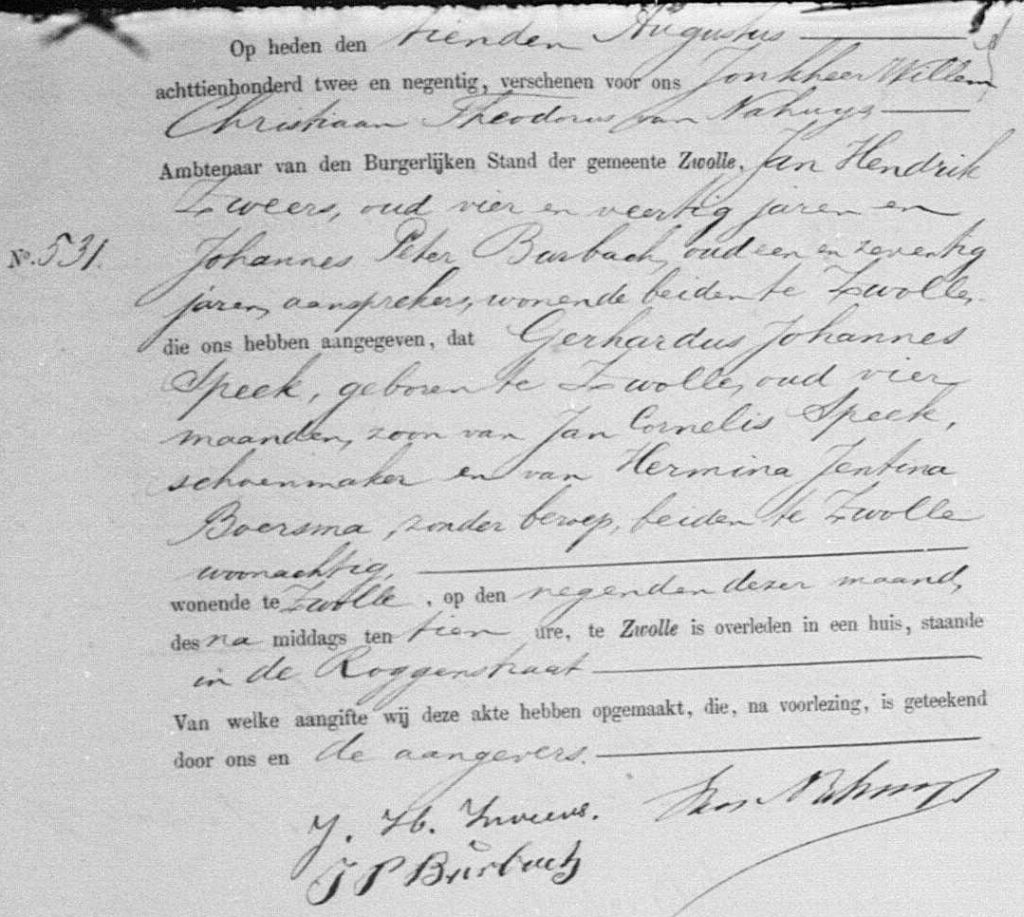 Op heden den tienden Augustus
achttienhonderd twee en negentig, verschenen voor ons Jonkheer Willem
Christiaan Theodorus van Nahuys
Ambtenaar van den Burgerlijken Stand der gemeente Zwolle, Jan Hendrik
Zweers, oud vier en veertig jaren en
No. 531. Johannes Peter Burbach, oud een en zeventig
jaren, aansprekers, wonende beiden te Zwolle,
die ons hebben aangegeven, dat Gerhardus Johannes
Speek, geboren te Zwolle, oud vier
maanden, zoon van Jan Cornelis Speek,
schoenmaker en van Hermina Jentina
Boersma, zonder beroep, beiden te Zwolle
woonachtig,
wonende te Zwolle, op den negenden dezer maand,
des na middags ten tien ure, te Zwolle is overleden in een huis, staande
in de Roggenstraat
Van welke aangifte wij deze akte hebben opgemaakt, die, na voorlezing, is geteekend
door ons en de aangevers.
J. H. Zweers. van Nahuys
J P Burbach